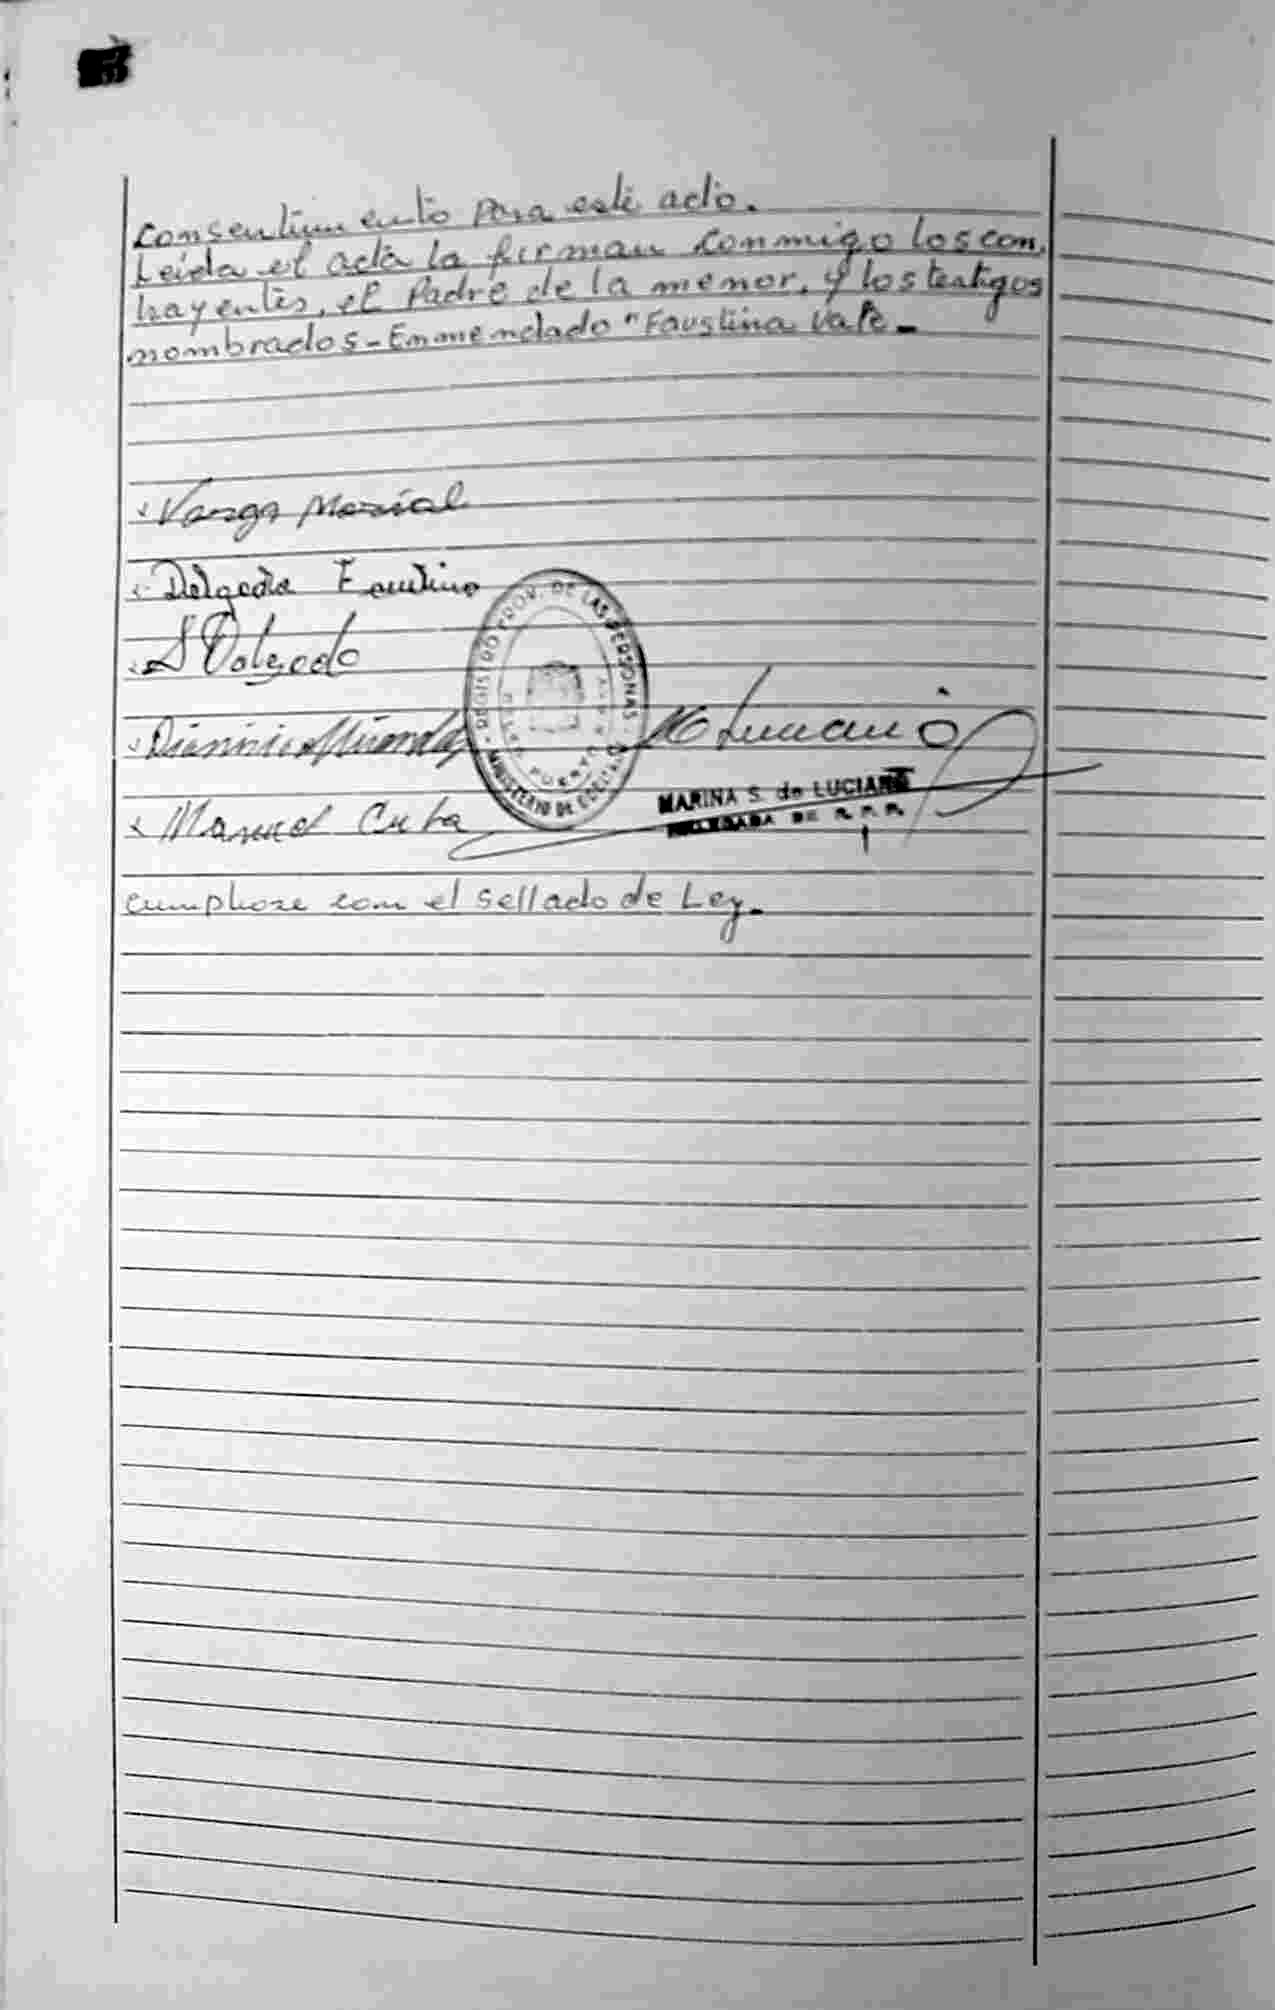 consentimiento para este acto.
Leída el acta la firman conmigo los con
trayentes, el Padre de la menor, y los testigos
nombrados - Enmendado "Faustina Vale -
Vargas Marcial
Delgado Faustina
Delgado
Dionicio Miranda
Luciano
REGISTRO PROV. DE LAS PERSONAS
MINISTERIO DE GOBIERNO
PUERTO
MARINA S. de LUCIANO
DELEGADA DE R. P. P.
Manuel Cuba
cumplióse con el sellado de Ley.-